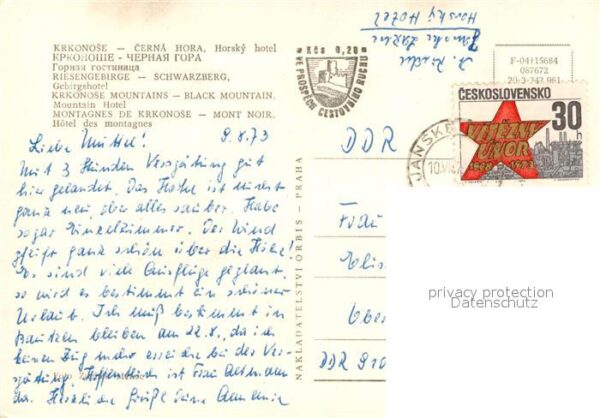 KRKONOŠE — ČERNÁ HORA, Horský hotel
КРКОЛОШЕ - ЧЕРНАЯ ГОРА
Горная гостиница
RIESENGEBIRGE — SCHWARZBERG,
Gebirgshotel
KRKONOSE MOUNTAINS — BLACK MOUNTAIN.
Mountain Hotel
MONTAGNES DE KRKONOSE — MONT NOIR,
Hôtel des montagnes
Liebe Mutti! 9.8.73
Mit 3 Stunden Verspätung gut
hier gelandet. Das Hotel ist nicht
ganz neu, aber alles sauber. Habe
sogar Einzelzimmer. Der Wind
pfeift ganz schön über die Höhe!
Es sind viele Ausflüge geplant,
so wird es bestimmt ein schöner
Urlaub. Ich muß bestimmt in
Bautzen bleiben am 22.8., da ich
keinen Zug mehr erreiche bei der Ver-
spätung. Hoffentlich ist Frau
da. Herzliche Grüße Deine Annemarie
NAKLADATELSTVÍ ORBIS - PRAHA
Kčs 0,20
VE PROSPĚCH CESTOVNÍHO RUCHU
Janské Lázně
Horský Hotel
F-04†15684
087672
20-3-342 961
ČESKOSLOVENSKO
30 h
VÍTĚZNÝ
ÚNOR
1948 1973
JANSKÉ
10.VIII
DDR
Frau
Elis
Obe
DDR 910
privacy protection
Datenschutz